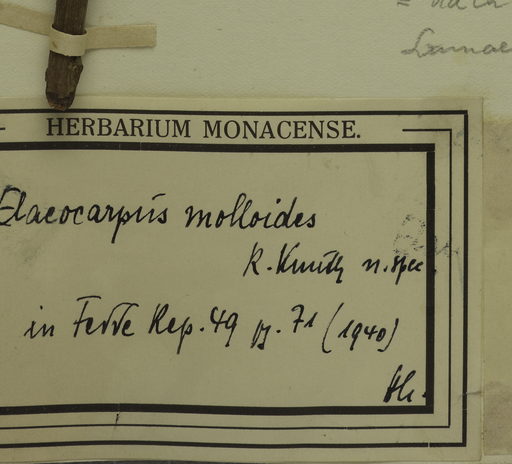 HERBARIUM MONACENSE.
Elaeocarpus molloides
R. Knuth n. spec.
in Fedde Rep. 49 p. 71 (1940)